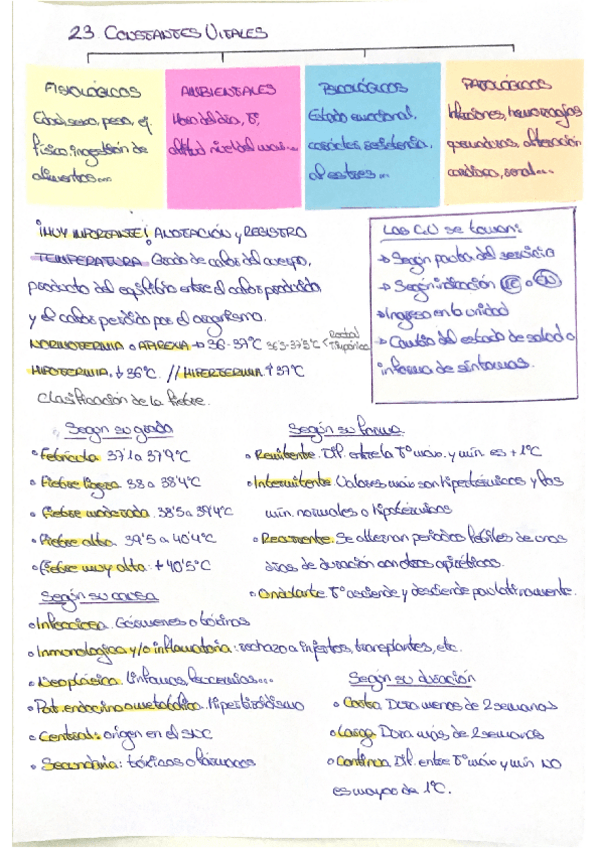 23 CONSTANTES VITALES
FISIOLÓGICOS
Edad, sexo, peso, ej.
físico, ingestión de
alimentos...
AMBIENTALES
Hora del día, Tº,
altitud nivel del mar...
PSICOLÓGICOS
Estado emocional,
carácter, resistencia
al estres...
PATOLÓGICOS
Infecciones, hemorragias
quemaduras, alteración
cardiaca, renal...
¡MUY IMPORTANTE! ANOTACIÓN y REGISTRO
TEMPERATURA Grado de calor del cuerpo,
producto del equilibrio entre el calor producido
y el calor perdido por el organismo.
NORMOTERMIA o APIREXIA → 36-37ºC 36'3-37'5ºC < Rectal
Timpánica
HIPOTERMIA. ↓ 36ºC. // HIPERTERMIA ↑ 37ºC
Las C.V se toman:
→ Según pauta del servicio
→ Según indicación
→ Ingreso en la unidad
→ Cambio del estado de salud o
informa de síntomas.
Clasificación de la fiebre.
Según su grado
• Febrícula 37'1 a 37'9ºC
• Fiebre ligera 38 a 38'4ºC
• Fiebre moderada. 38'5 a 39'4ºC
• Fiebre alta. 39'5 a 40'4ºC
• Fiebre muy alta: + 40'5ºC
Según su forma
• Remitente. Dif. entre la Tº máx. y mín. es + 1ºC
• Intermitente. Valores máx son hipertérmicos y los
mín. normales o hipotérmicos
• Recurrente. Se alternan periodos febriles de unos
días de duración con otros apiréticos.
• Ondulante. Tº asciende y desciende paulatinamente.
Según su causa
• Infecciosa. Gérmenes o toxinas
• Inmonologica y/o inflamatoria: rechazo a injertos, transplantes, etc.
• Neoplásica. Linfomas, leucemias...
• Pat. endocrino o metabólica. Hipertiroidismo
• Central: origen en el SNC
• Secundaria: tóxicos o fármacos
Según su duración
• Corta. Dura menos de 2 semanas
• Larga. Dura más de 2 semanas
• Continua. Dif. entre Tº máx y mín NO
es mayor de 1ºC.